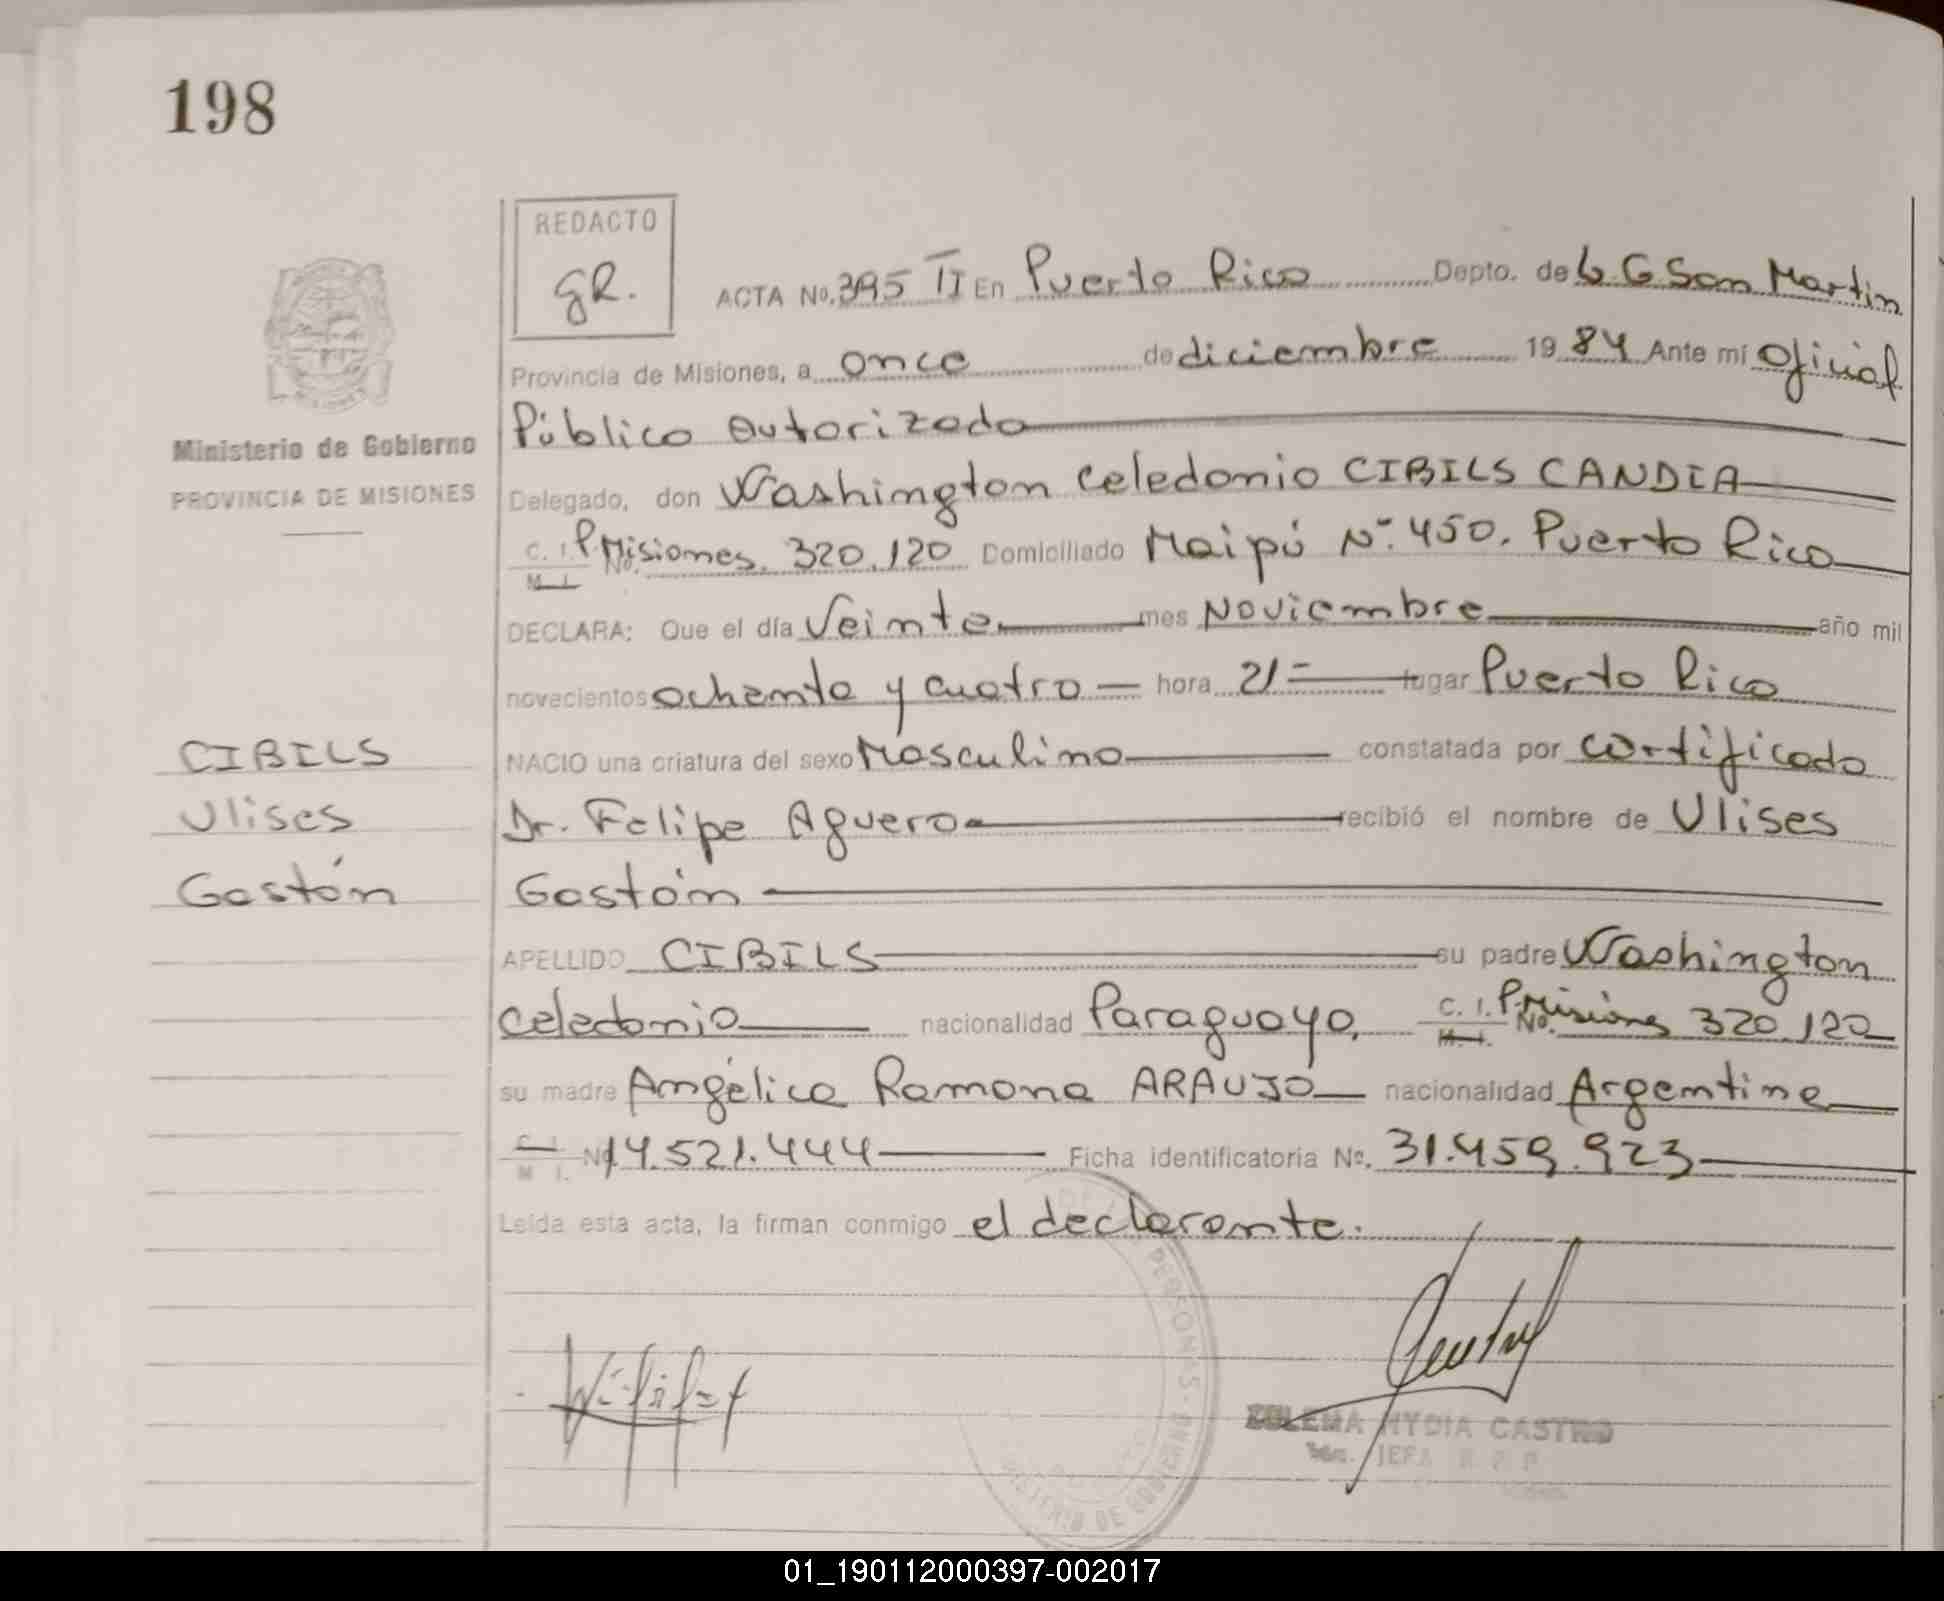 198
REDACTO
gR.
ACTA No. 395 II En Puerto Rico Depto. de L G San Martin
Provincia de Misiones, a once de diciembre 1984 Ante mi Oficial
Público autorizado
Ministerio de Gobierno
PROVINCIA DE MISIONES
Delegado, don Washington Celedonio CIBILS CANDIA
C. I. M. I. No. P. Misiones. 320.120 Domiciliado Maipú Nº 450. Puerto Rico
DECLARA: Que el día Veinte mes Noviembre año mil
novecientos ochenta y cuatro hora 21 lugar Puerto Rico
CIBILS
Ulises
Gastón
NACIO una criatura del sexo Masculino constatada por certificado
Dr. Felipe Aguero recibió el nombre de Ulises
Gastón
APELLIDO CIBILS su padre Washington
Celedonio nacionalidad Paraguayo, C. I. M. I. No. P. Misiones 320.120
su madre Angélica Ramona ARAUJO nacionalidad Argentina
C. I. M. I. No. 14.521.444 Ficha identificatoria No. 31.459.923
Leída esta acta, la firman conmigo el declarante.
PERSONAS
MINISTERIO DE GOBIERNO
ZULEMA NYDIA CASTRO
JEFA
01_190112000397-002017